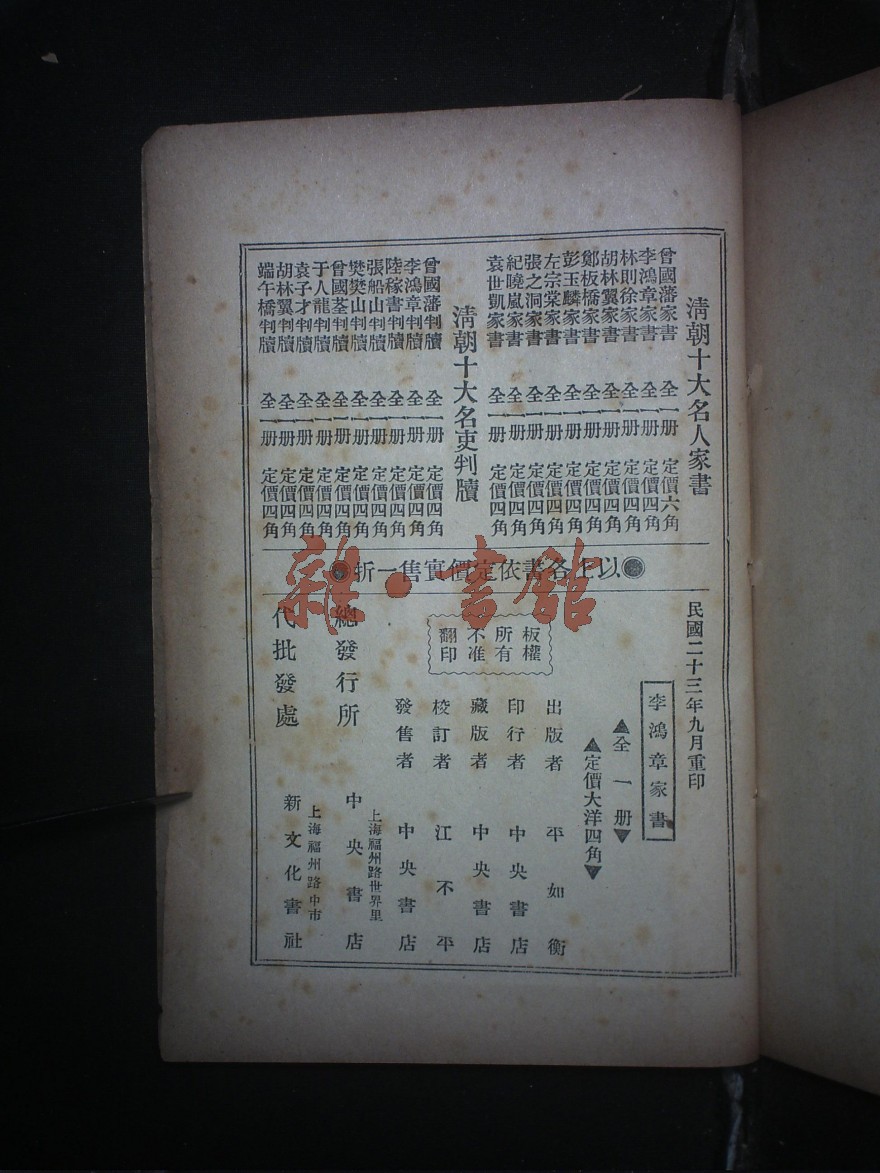 清朝十大名人家書
曾國藩家書 全一册 定價六角
李鴻章家書 全一册 定價四角
林則徐家書 全一册 定價四角
胡林翼家書 全一册 定價四角
鄭板橋家書 全一册 定價四角
彭玉麟家書 全一册 定價四角
左宗棠家書 全一册 定價四角
張之洞家書 全一册 定價四角
紀曉嵐家書 全一册 定價四角
袁世凱家書 全一册 定價四角
清朝十大名吏判牘
曾國藩判牘 全一册 定價四角
李鴻章判牘 全一册 定價四角
陸稼書判牘 全一册 定價四角
張船山判牘 全一册 定價四角
樊樊山判牘 全一册 定價四角
曾國荃判牘 全一册 定價四角
于人龍判牘 全一册 定價四角
袁子才判牘 全一册 定價四角
胡林翼判牘 全一册 定價四角
端午橋判牘 全一册 定價四角
以上各書依定價實售一折
民國二十三年九月重印
李鴻章家書
▲全一册▼
▲定價大洋四角▼
板權
所有
不准
翻印
出版者 平如衡
印行者 中央書店
藏版者 中央書店
校訂者 江不平
發售者 中央書店
總發行所 上海福州路世界里 中央書店
代批發處 上海福州路中市 新文化書社
雜·書館